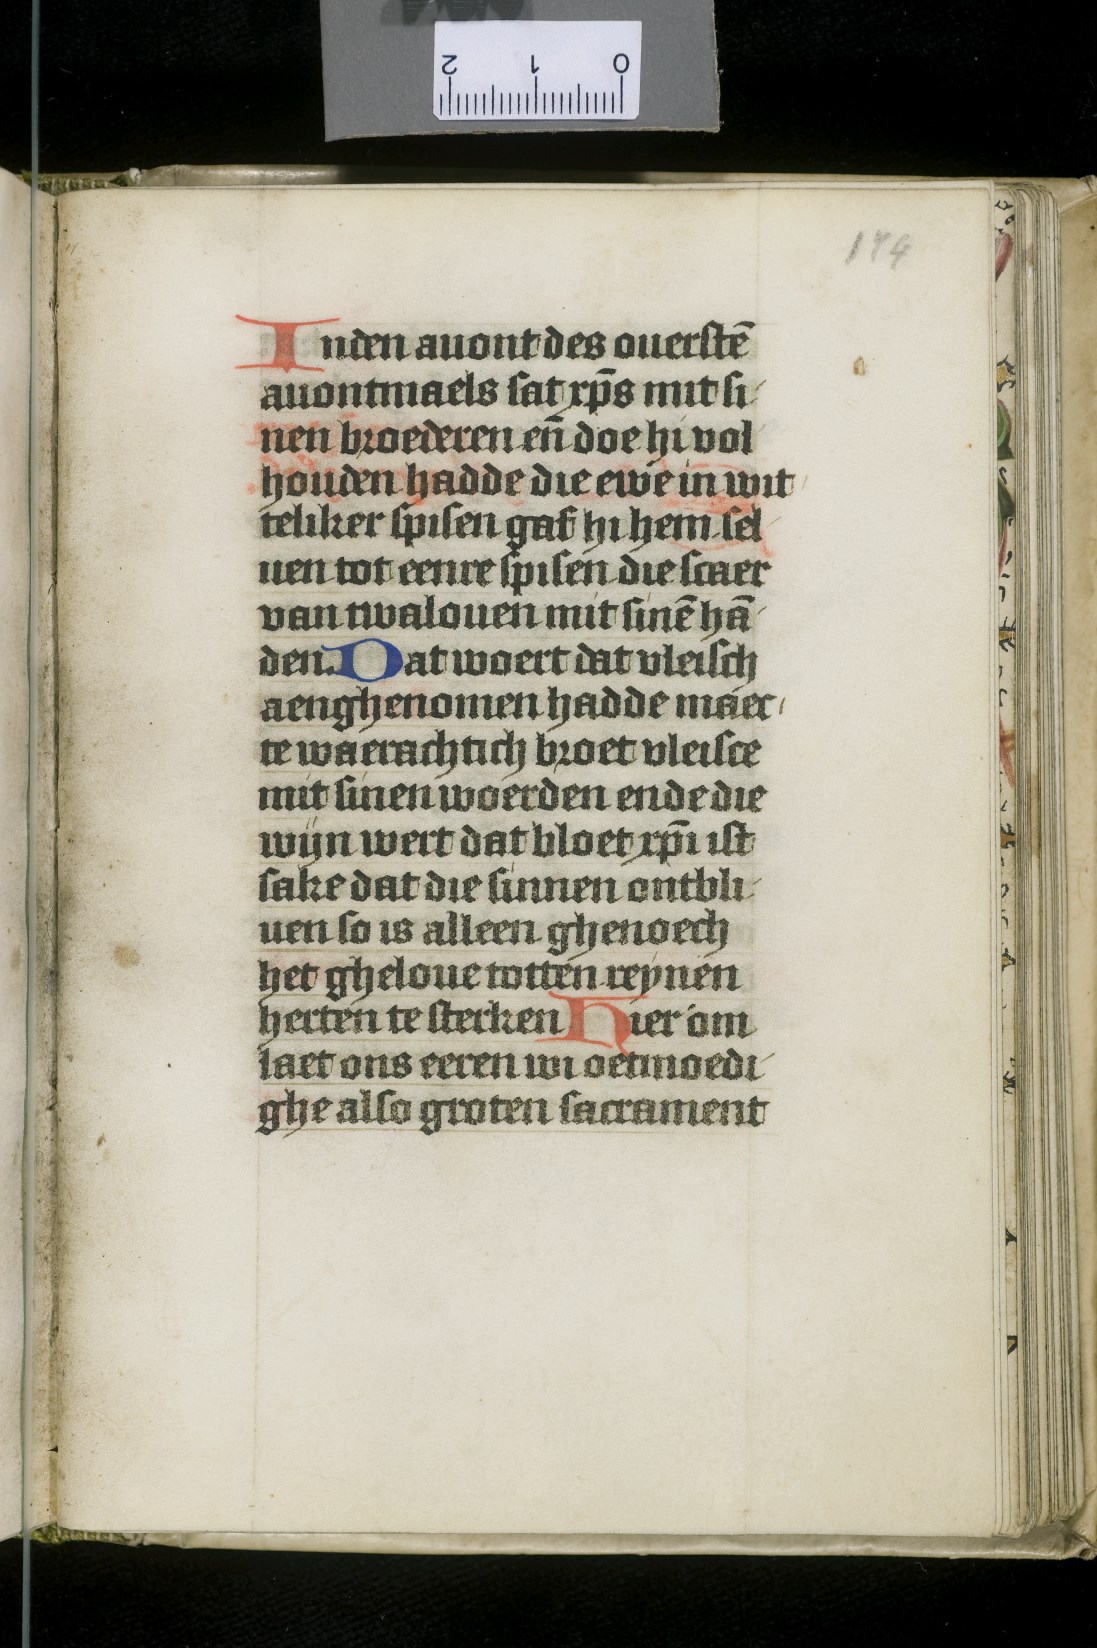 2 1 0
174
Inden auont des ouerstē
auontmaels sat xp̄s mit si
nen broederen en̄ doe hi vol
houden hadde die ewe in wit
teliker spisen gaf hi hem sel
uen tot eenre spisen die scaer
van twalouen mit sinē hā
den. Dat woert dat vleisch
aenghenomen hadde maec
te waerachtich broet vleisce
mit sinen woerden ende die
wijn wert dat bloet xp̄i ist
sake dat die sinnen ontbli
uen so is alleen ghenoech
het gheloue totten reynen
herten te sterken Hier om
laet ons eeren wi oetmoedi
ghe also groten sacrament